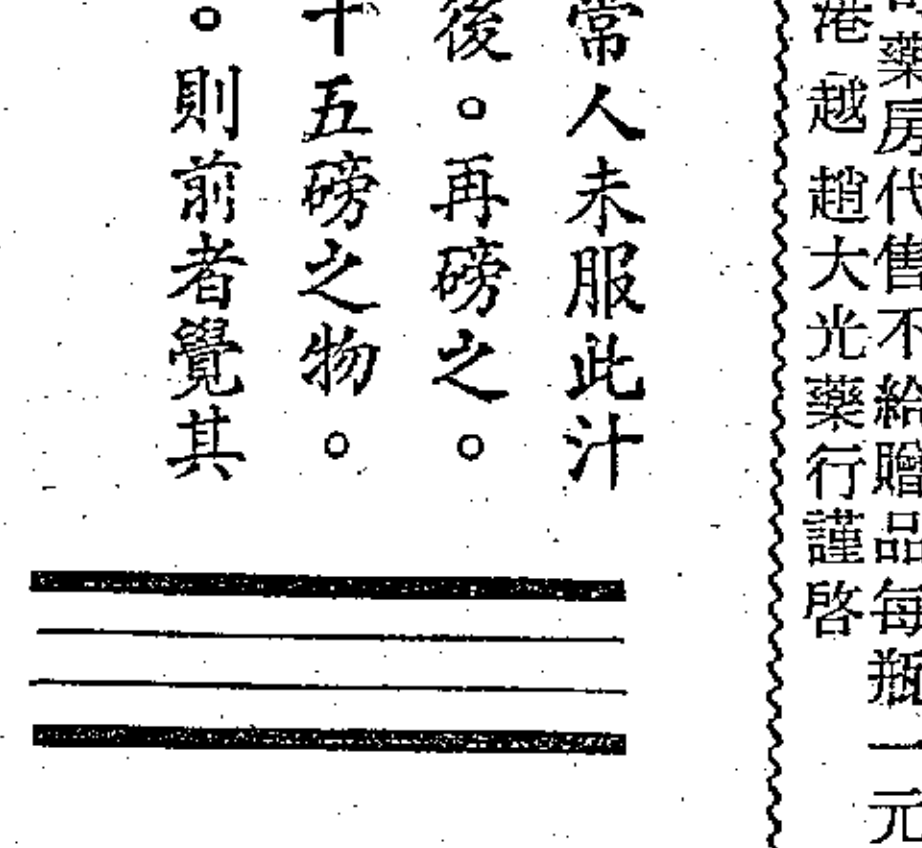 藥房代售不給贈品每瓶一元
港越趙大光藥行謹啓
常人未服此汁
後。再磅之。
十五磅之物。
。則前者覺其